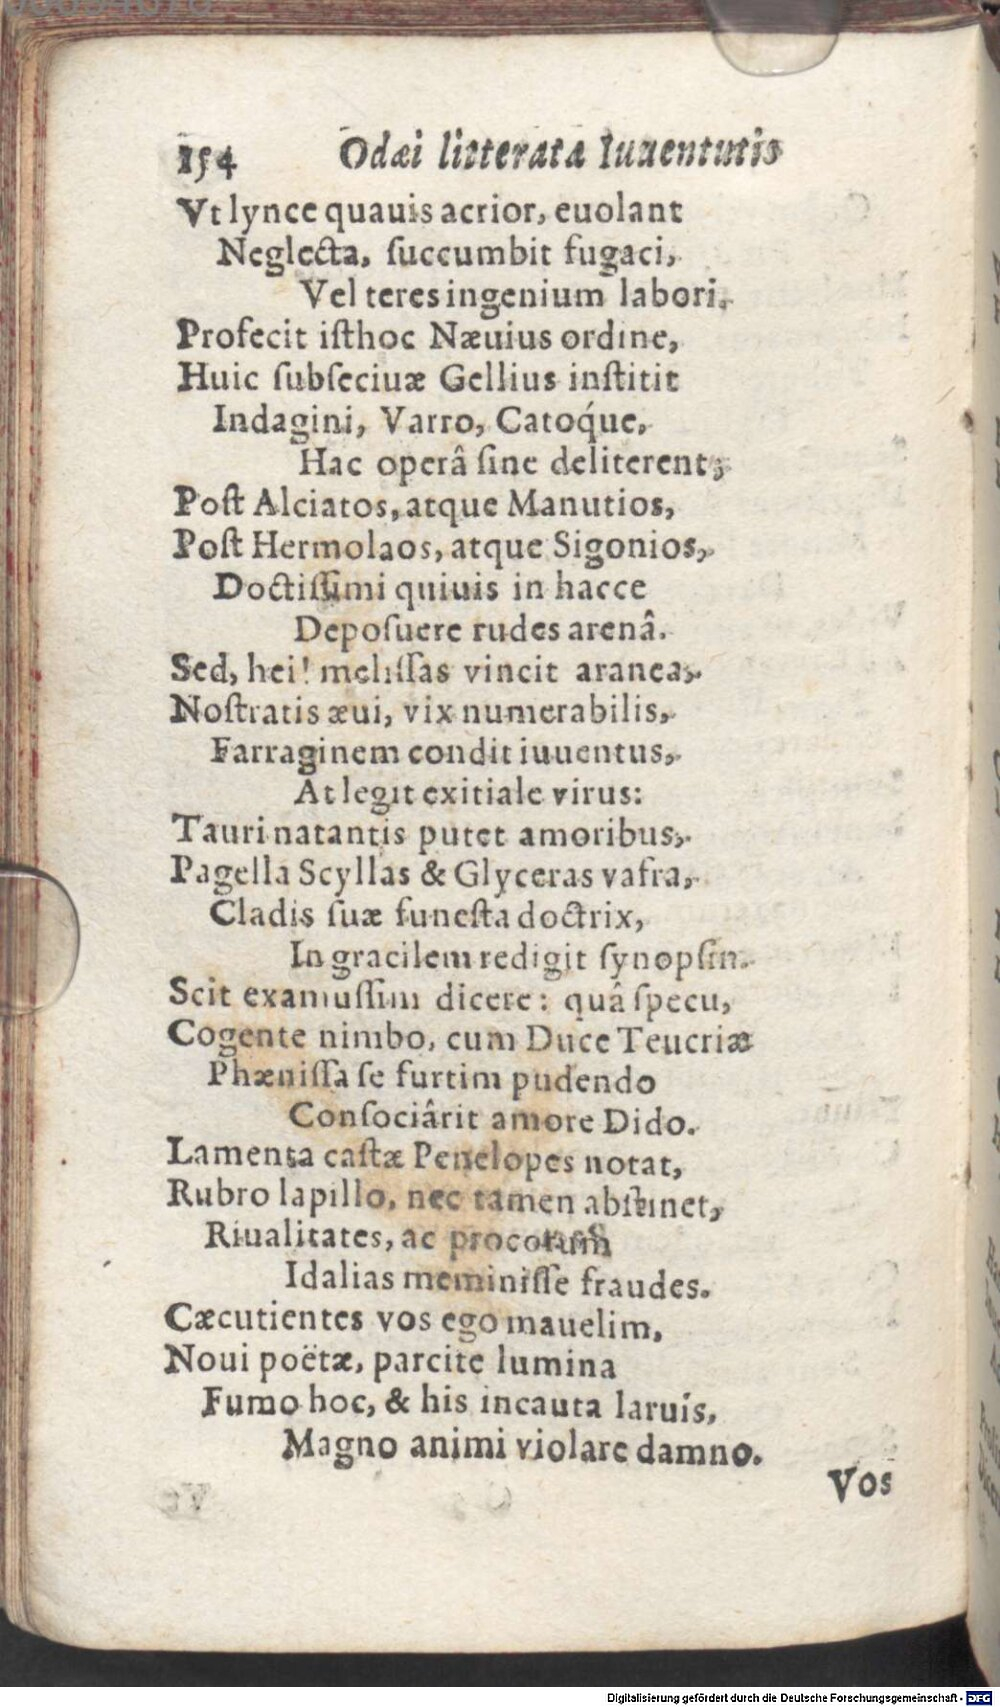 154 Odæi litterata Iuuentutis
Vt lynce quauis acrior, euolant
Neglecta, ſuccumbit fugaci,
Vel teres ingenium labori.
Profecit iſthoc Næuius ordine,
Huic ſubſeciuæ Gellius inſtitit
Indagini, Varro, Catoq́ue,
Hac operâ ſine deliterent;
Poſt Alciatos, atque Manutios,
Poſt Hermolaos, atque Sigonios,
Doctiſſimi quiuis in hacce
Depoſuere rudes arenâ.
Sed, hei! meliſſas vincit aranea,
Noſtratis æui, vix numerabilis,
Farraginem condit iuuentus,
At legit exitiale virus:
Tauri natantis putet amoribus,
Pagella Scyllas & Glyceras vafra,
Cladis ſuæ funeſta doctrix,
In gracilem redigit ſynopſin.
Scit examuſſim dicere: quâ ſpecu,
Cogente nimbo, cum Duce Teucriæ
Phæniſſa ſe furtim pudendo
Conſociârit amore Dido.
Lamenta caſtæ Penelopes notat,
Rubro lapillo, nec tamen abſtinet,
Riualitates, ac procorum
Idalias meminiſſe fraudes.
Cæcutientes vos ego mauelim,
Noui poëtæ, parcite lumina
Fumo hoc, & his incauta laruis,
Magno animi violare damno.
Vos
Digitalisierung gefördert durch die Deutsche Forschungsgemeinschaft - DFG